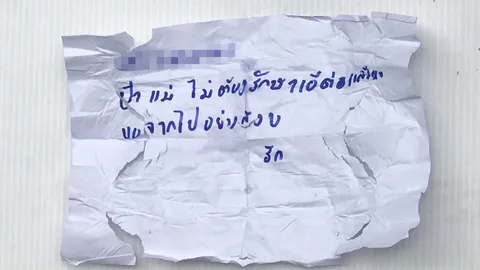 ป๊า แม่ ไม่ต้องรักษาเอ๋ต่อแล้วนะ
ขอจากไปอย่างสงบ
รัก